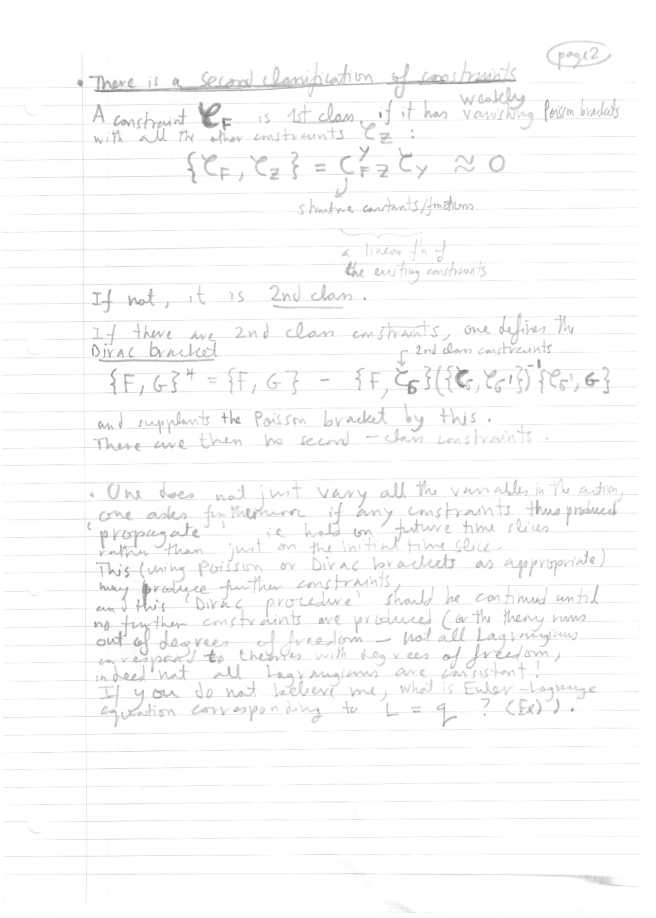 page 2
• There is a second classification of constraints
weakly
A constraint 𝒞_F is 1st class, if it has vanishing Poisson brackets
with all the other constraints 𝒞_Z :
{𝒞_F, 𝒞_Z} = C^Y_{FZ} 𝒞_Y ≈ 0
structure constants/functions
a linear fn of
the existing constraints
If not, it is 2nd class.
If there are 2nd class constraints, one defines the
Dirac bracket
2nd class constraints
{F, G}* = {F, G} - {F, 𝒞_S}({𝒞_S, 𝒞_S'})^{-1}{𝒞_S', G}
and supplants the Poisson bracket by this.
There are then no second-class constraints.
• One does not just vary all the variables in the action,
one asks furthermore if any constraints thus produced
'propagate' ie hold on future time slices
rather than just on the initial time slice.
This (using Poisson or Dirac brackets as appropriate)
may produce further constraints,
and this 'Dirac procedure' should be continued until
no further constraints are produced (or the theory runs
out of degrees of freedom – not all Lagrangians
correspond to theories with degrees of freedom,
indeed not all Lagrangians are consistent!
If you do not believe me, what is Euler-Lagrange
equation corresponding to L = q ? (Ex)).